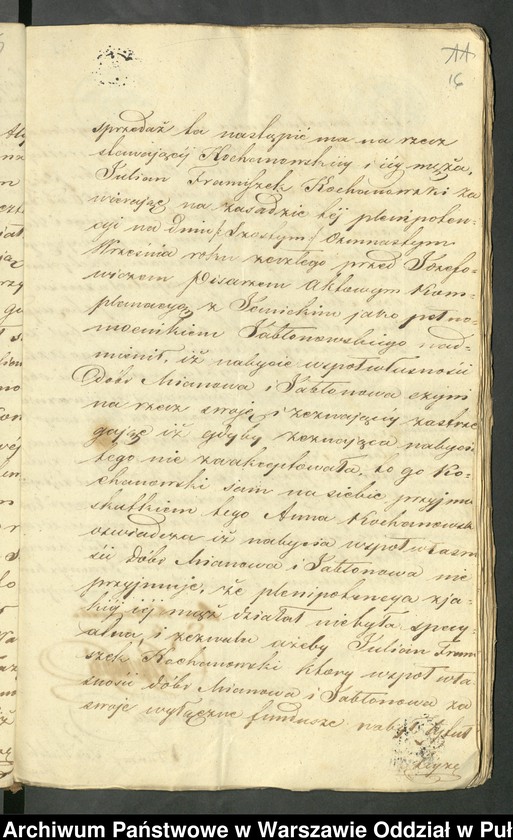 11
16
sprzedaż ta nastąpić ma na rzecz
stawającéj Kochanowskiéj i iéy męża,
Julian Franciszek Kochanowski za
wierając na zasadzie téj plenipoten-
cyi na dniu Szóstym / Osmnastym
Września roku zeszłego przed Józefo-
wiczem Pisarzem Aktowym Kom-
planacyą z Tomickim jako pełno-
mocnikiem Jabłonowskiego nad-
mienił, iż nabycie współwłasności
Dóbr Mianowa i Jabłonowa czyni
na rzecz swoję i zeznającéy zastrze
gając iż gdyby zeznająca nabycia
tego nie zaakceptowała, to go Ko-
chanowski sam na siebie przyjmu
skutkiem tego Anna Kochanowska
oświadcza iż nabycia współwłasno
ści dóbr Mianowa i Jabłonowa nie
przyjmuje, że plenipotencya z ja-
kiéj iéj mąż działał niebyła specy
alna, i zezwala ażeby Julian Franci
szek Kochanowski który współwła
sności dóbr Mianowa i Jabłonowa za
swoje wyłączne fundusze nabył tytuł
Archiwum Państwowe w Warszawie Oddział w Puł